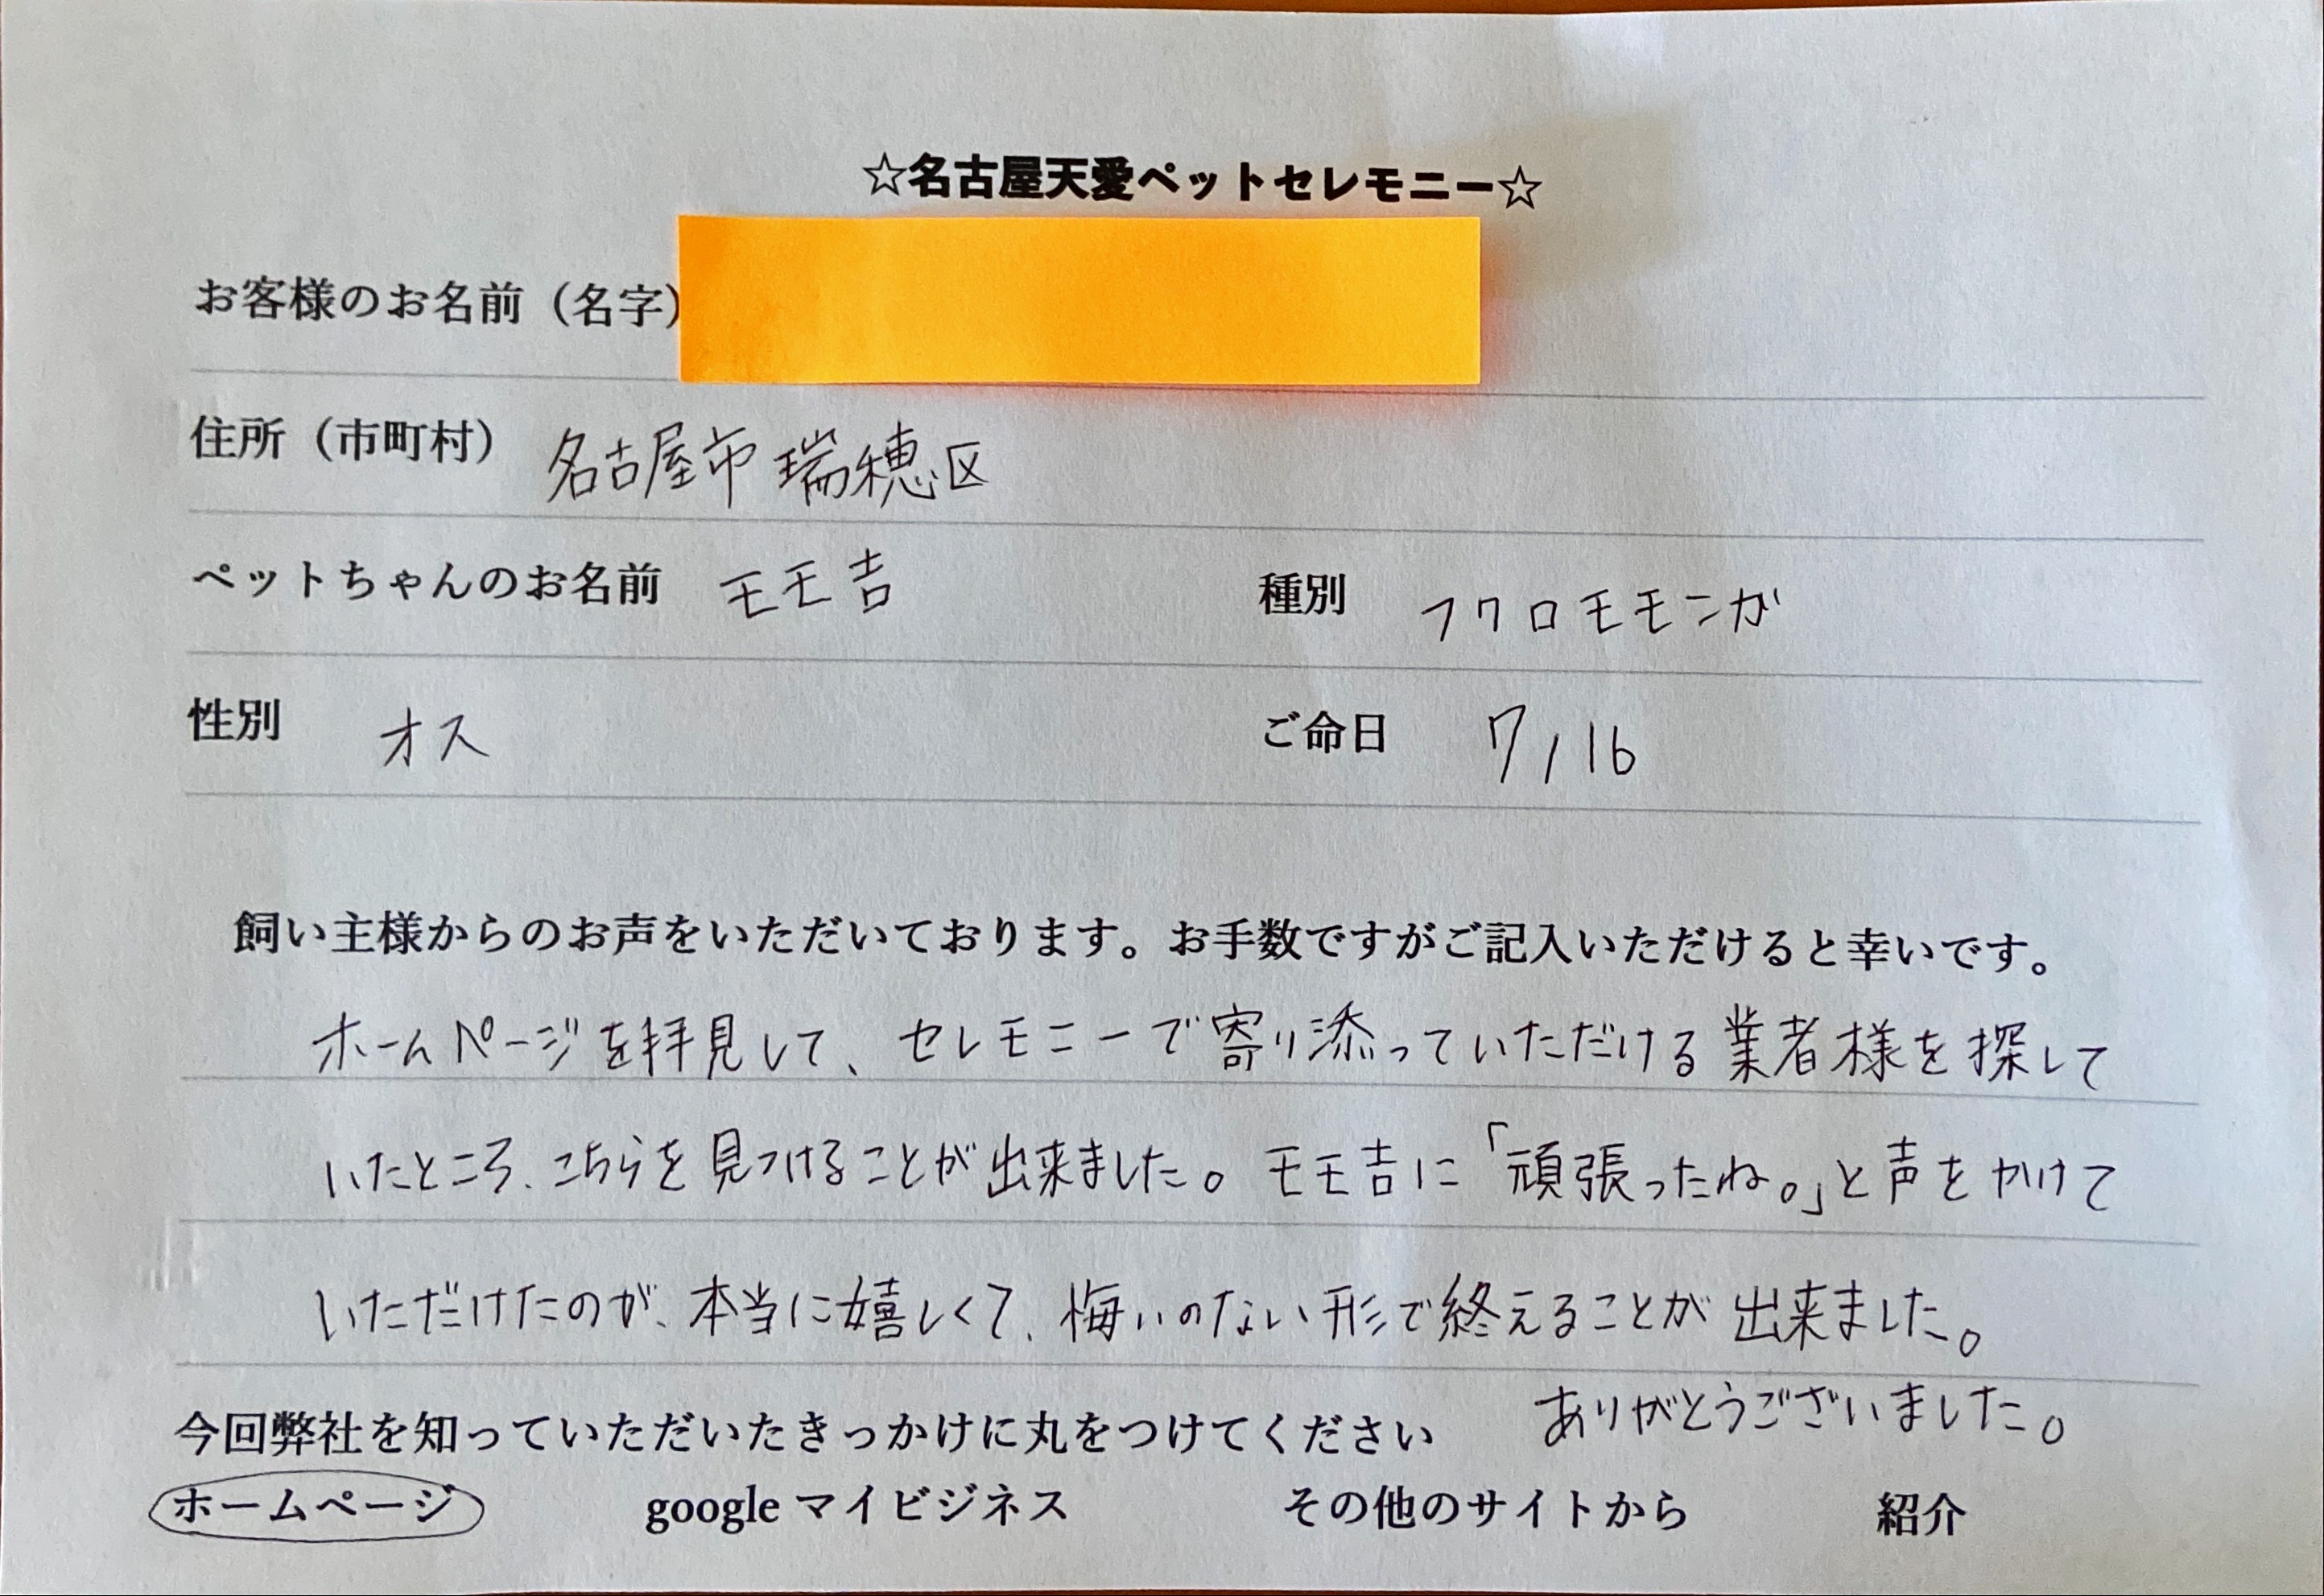 ☆名古屋天愛ペットセレモニー☆
お客様のお名前（名字）
住所（市町村） 名古屋市瑞穂区
ペットちゃんのお名前 モモ吉 種別 フクロモモンガ
性別 オス ご命日 7/16
飼い主様からのお声をいただいております。お手数ですがご記入いただけると幸いです。
ホームページを拝見して、セレモニーで寄り添っていただける業者様を探して
いたところ、こちらを見つけることが出来ました。モモ吉に「頑張ったね。」と声をかけて
いただけたのが、本当に嬉しくて、悔いのない形で終えることが出来ました。
ありがとうございました。
今回弊社を知っていただいたきっかけに丸をつけてください
ホームページ google マイビジネス その他のサイトから 紹介